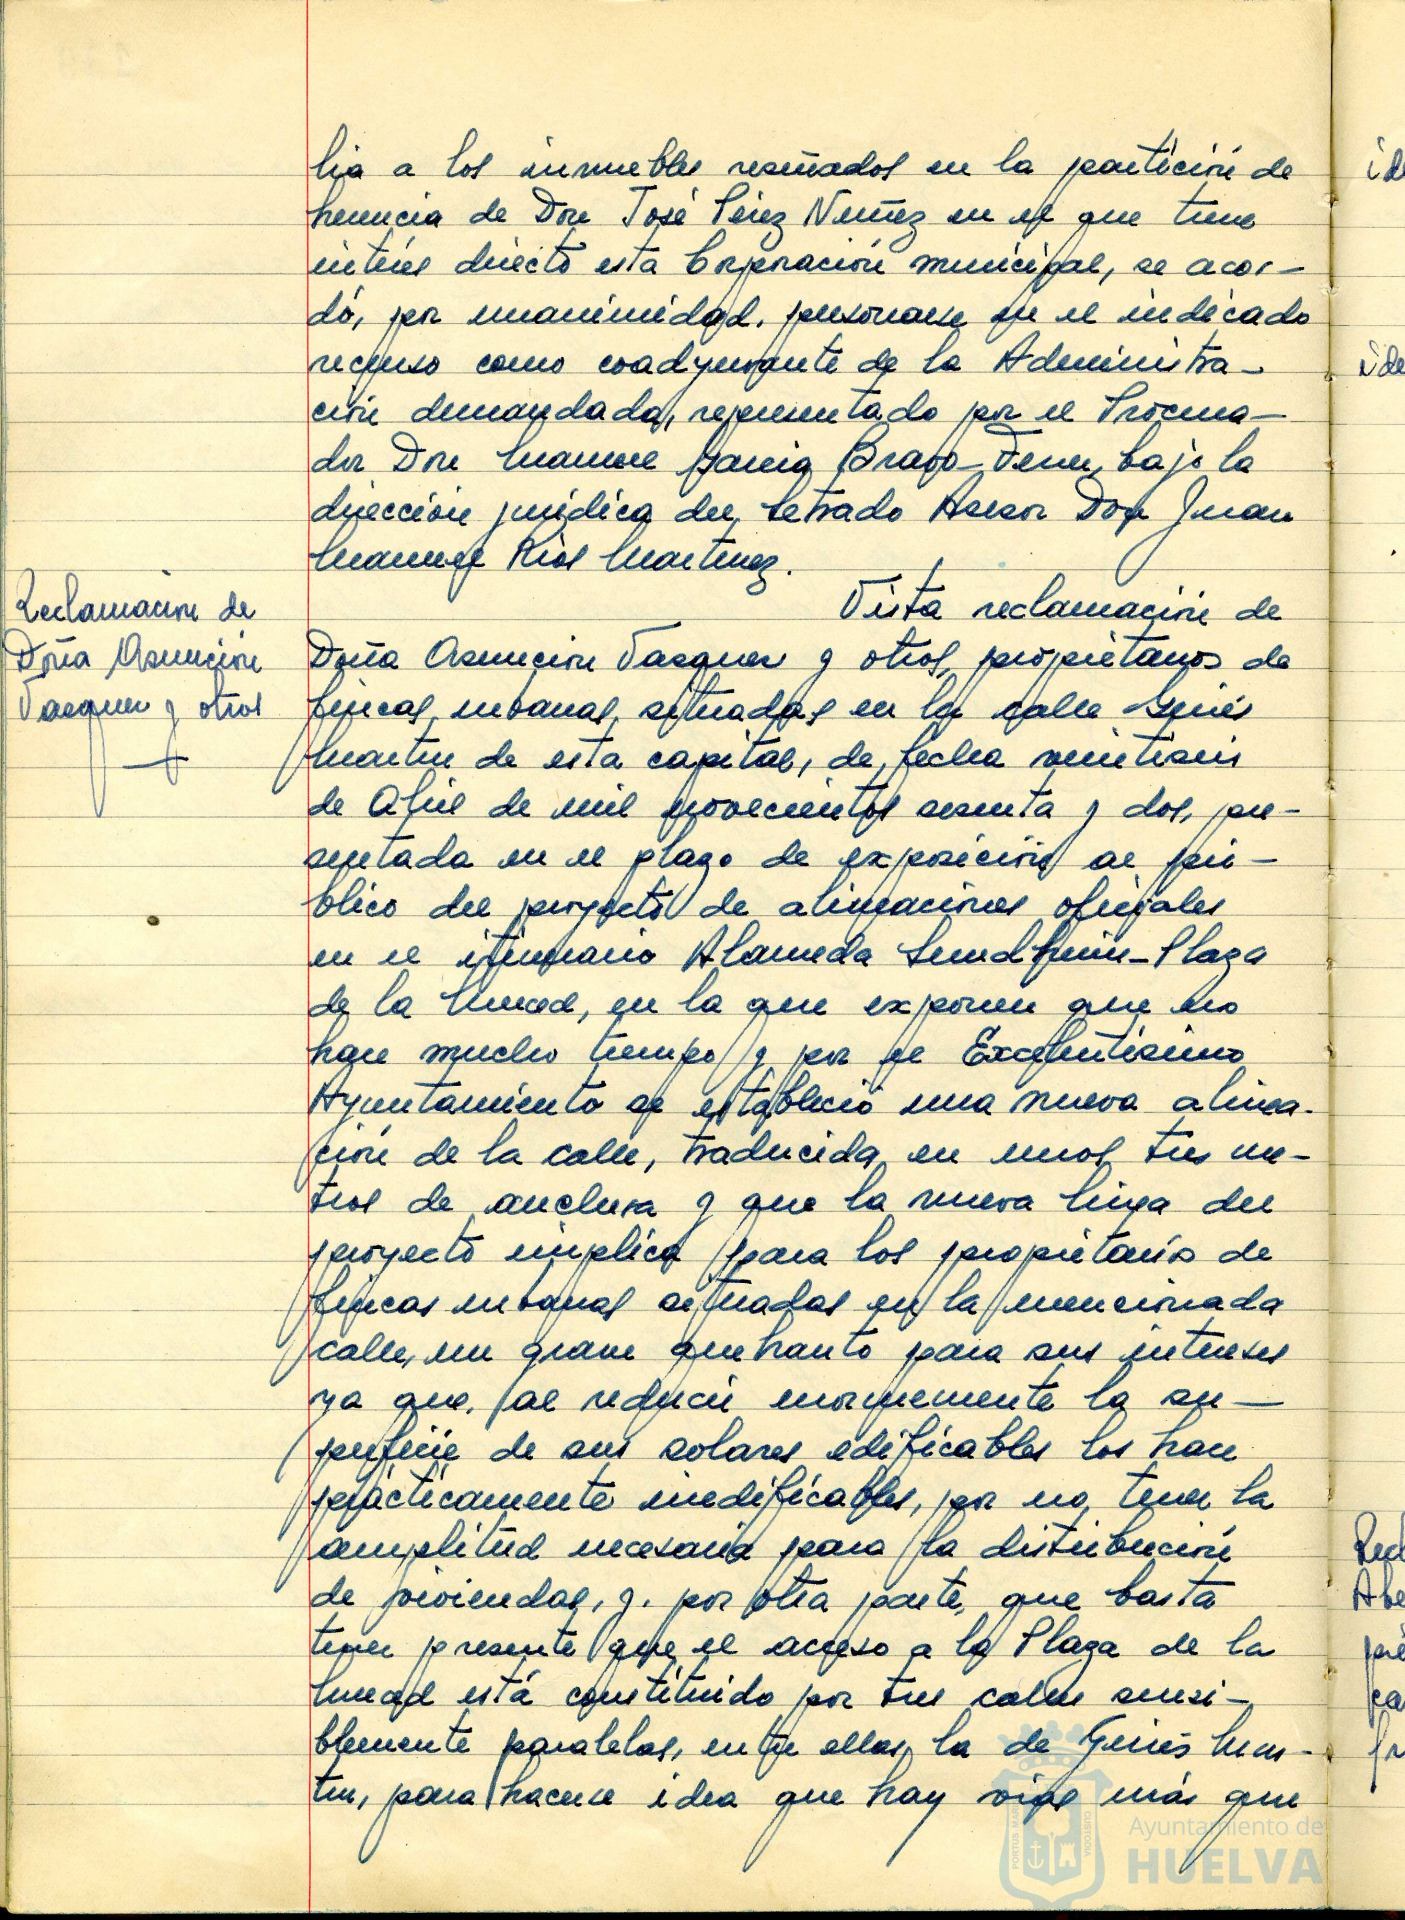 lia a los inmuebles reseñados en la partición de
herencia de Don José Pérez Núñez en el que tiene
interés directo esta Corporación municipal, se acor-
dó, por unanimidad, personarse en el indicado
recurso como coadyuvante de la Administra-
ción demandada, representado por el Procura-
dor Don Manuel García Bravo-Ferrer, bajo la
dirección jurídica del Letrado Asesor Don Juan
Manuel Rios Martinez.
Reclamacion de
Doña Asunción
Vasquez y otros
Vista reclamación de
Doña Asuncion Vasquez y otros, propietarios de
fincas urbanas situadas en la calle Ginés
Martín de esta capital, de fecha veintiseis
de Abril de mil novecientos sesenta y dos, pre-
sentada en el plazo de exposición al pú-
blico del proyecto de alineaciones oficiales
en el itinerario Alameda Sundheim-Plaza
de la Merced, en la que exponen que no
hace mucho tiempo y por el Excelentísimo
Ayuntamiento se estableció una nueva alinea-
ción de la calle, traducida en unos tres me-
tros de anchura y que la nueva línea del
proyecto implica para los propietarios de
fincas urbanas situadas en la mencionada
calle, un grave quebranto para sus intereses
ya que, al reducir enormemente la su-
perficie de sus solares edificables los hace
prácticamente inedificables, por no tener la
amplitud necesaria para la distribución
de viviendas, y, por otra parte, que basta
tener presente que el acceso a la Plaza de la
Merced está constituido por tres calles sensi-
blemente paralelas, entre ellas la de Ginés Mar-
tín, para hacerse idea que hay vías más que
Ayuntamiento de
HUELVA